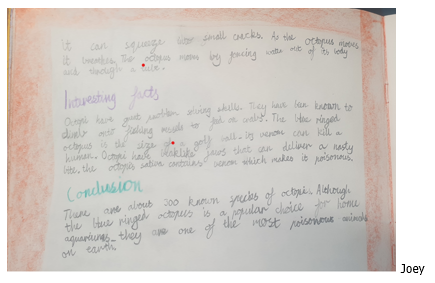 It can squeeze into small cracks. As the octopus moves
it breathes. The octopus moves by forcing water out of its body
and through a tube.
Interesting facts
Octopi have great problem solving skills. They have been known to
climb onto fishing vessels to for The blue ringed
octopus is the size of a golf ball. Its venom can kill a
human. Octopi have beaklike jaws that can deliver a nasty
bite. the octopus saliva contains venom which makes it poisonous.
Conclusion
There are about 300 known species of octopi. Although
the blue ringed octopus is a popular choice for home
aquariums. they are one of the most poisonous animals
on earth.
Joey